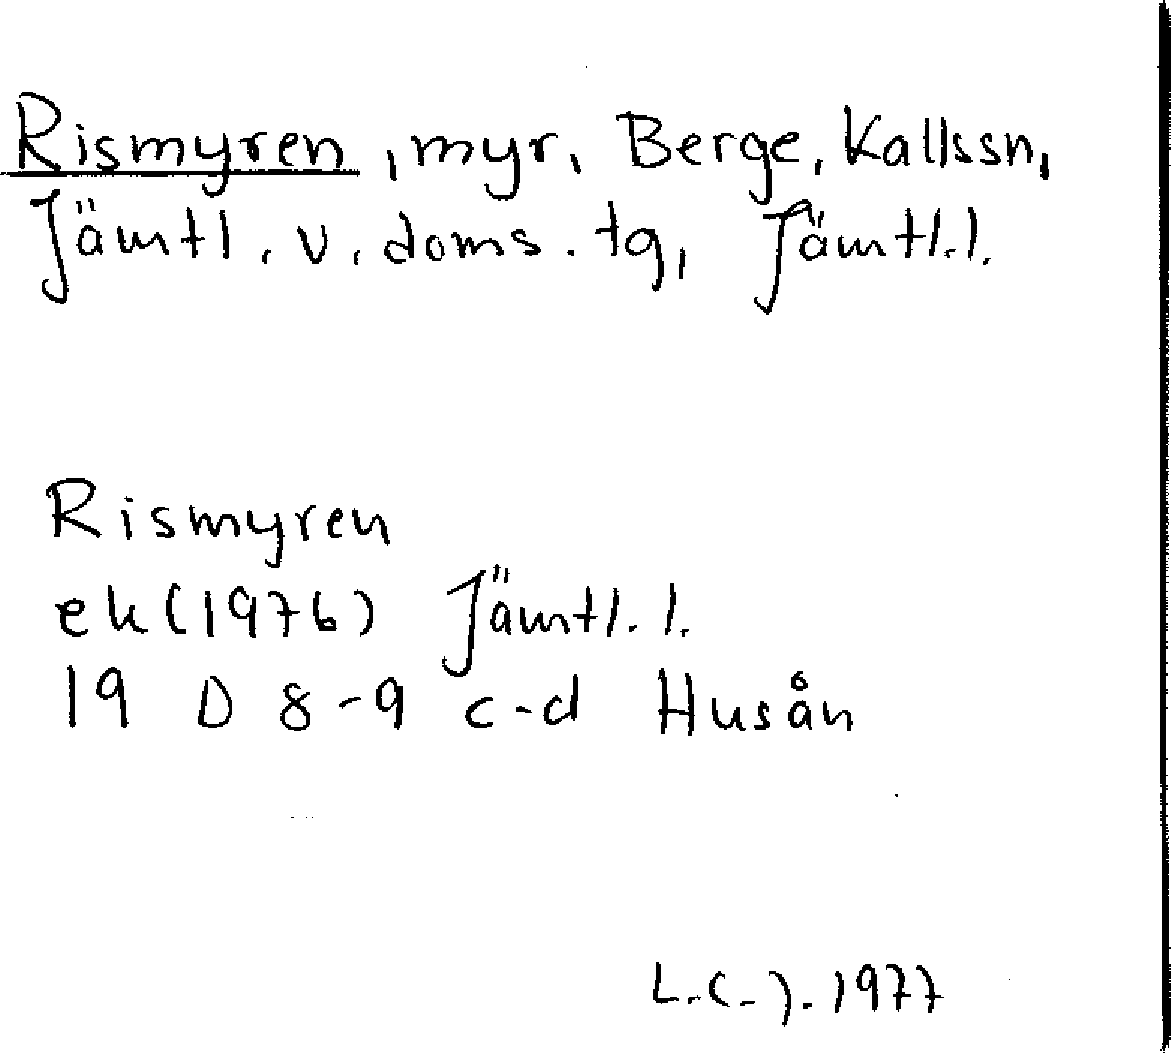 Rismyren, myr, Berge, Kallssn,
Jämtl. v. doms. tg, Jämtl.l.
Rismyren
ek (1976) Jämtl. l.
19 D 8-9 c-d Husån
1977